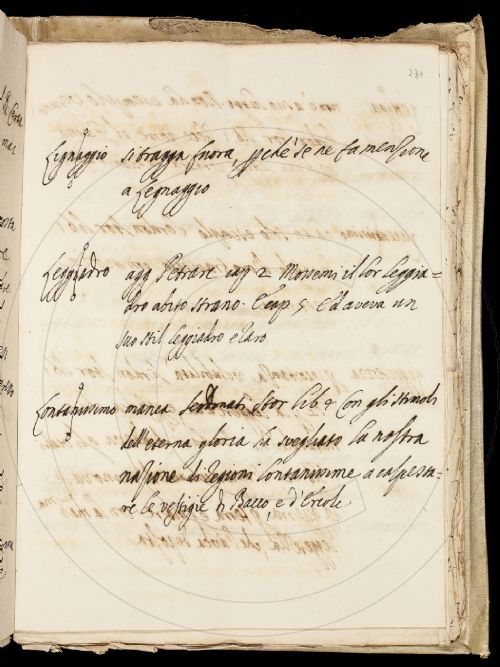 271
Legnaggio si tragga fuora, pchè se ne fa menzione
a Legnaggio
Leggiadro agg. Petrarc cap 2 Mossemi il lor leggia=
dro abito strano. E cap 5 Ed aveva un
suo stil leggiadro e raro
Lontanissimo manca Serdonati Stor lib 4 Con gli stimoli
dell'eterna gloria ha svegliato la nostra
nazione di regioni lontanissime a calpesta=
re le vestigie di Bacco, e d'Ercole